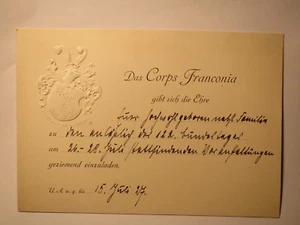 Das Corps Franconia
gibt sich die Ehre
Euer Hochwohlgeboren nebst Familie
zu den anläßlich des 122. Bundestages
am 26.-28. Juli stattfindenden Veranstaltungen
geziemend einzuladen.
U. A. w. g. bis 15. Juli 27.